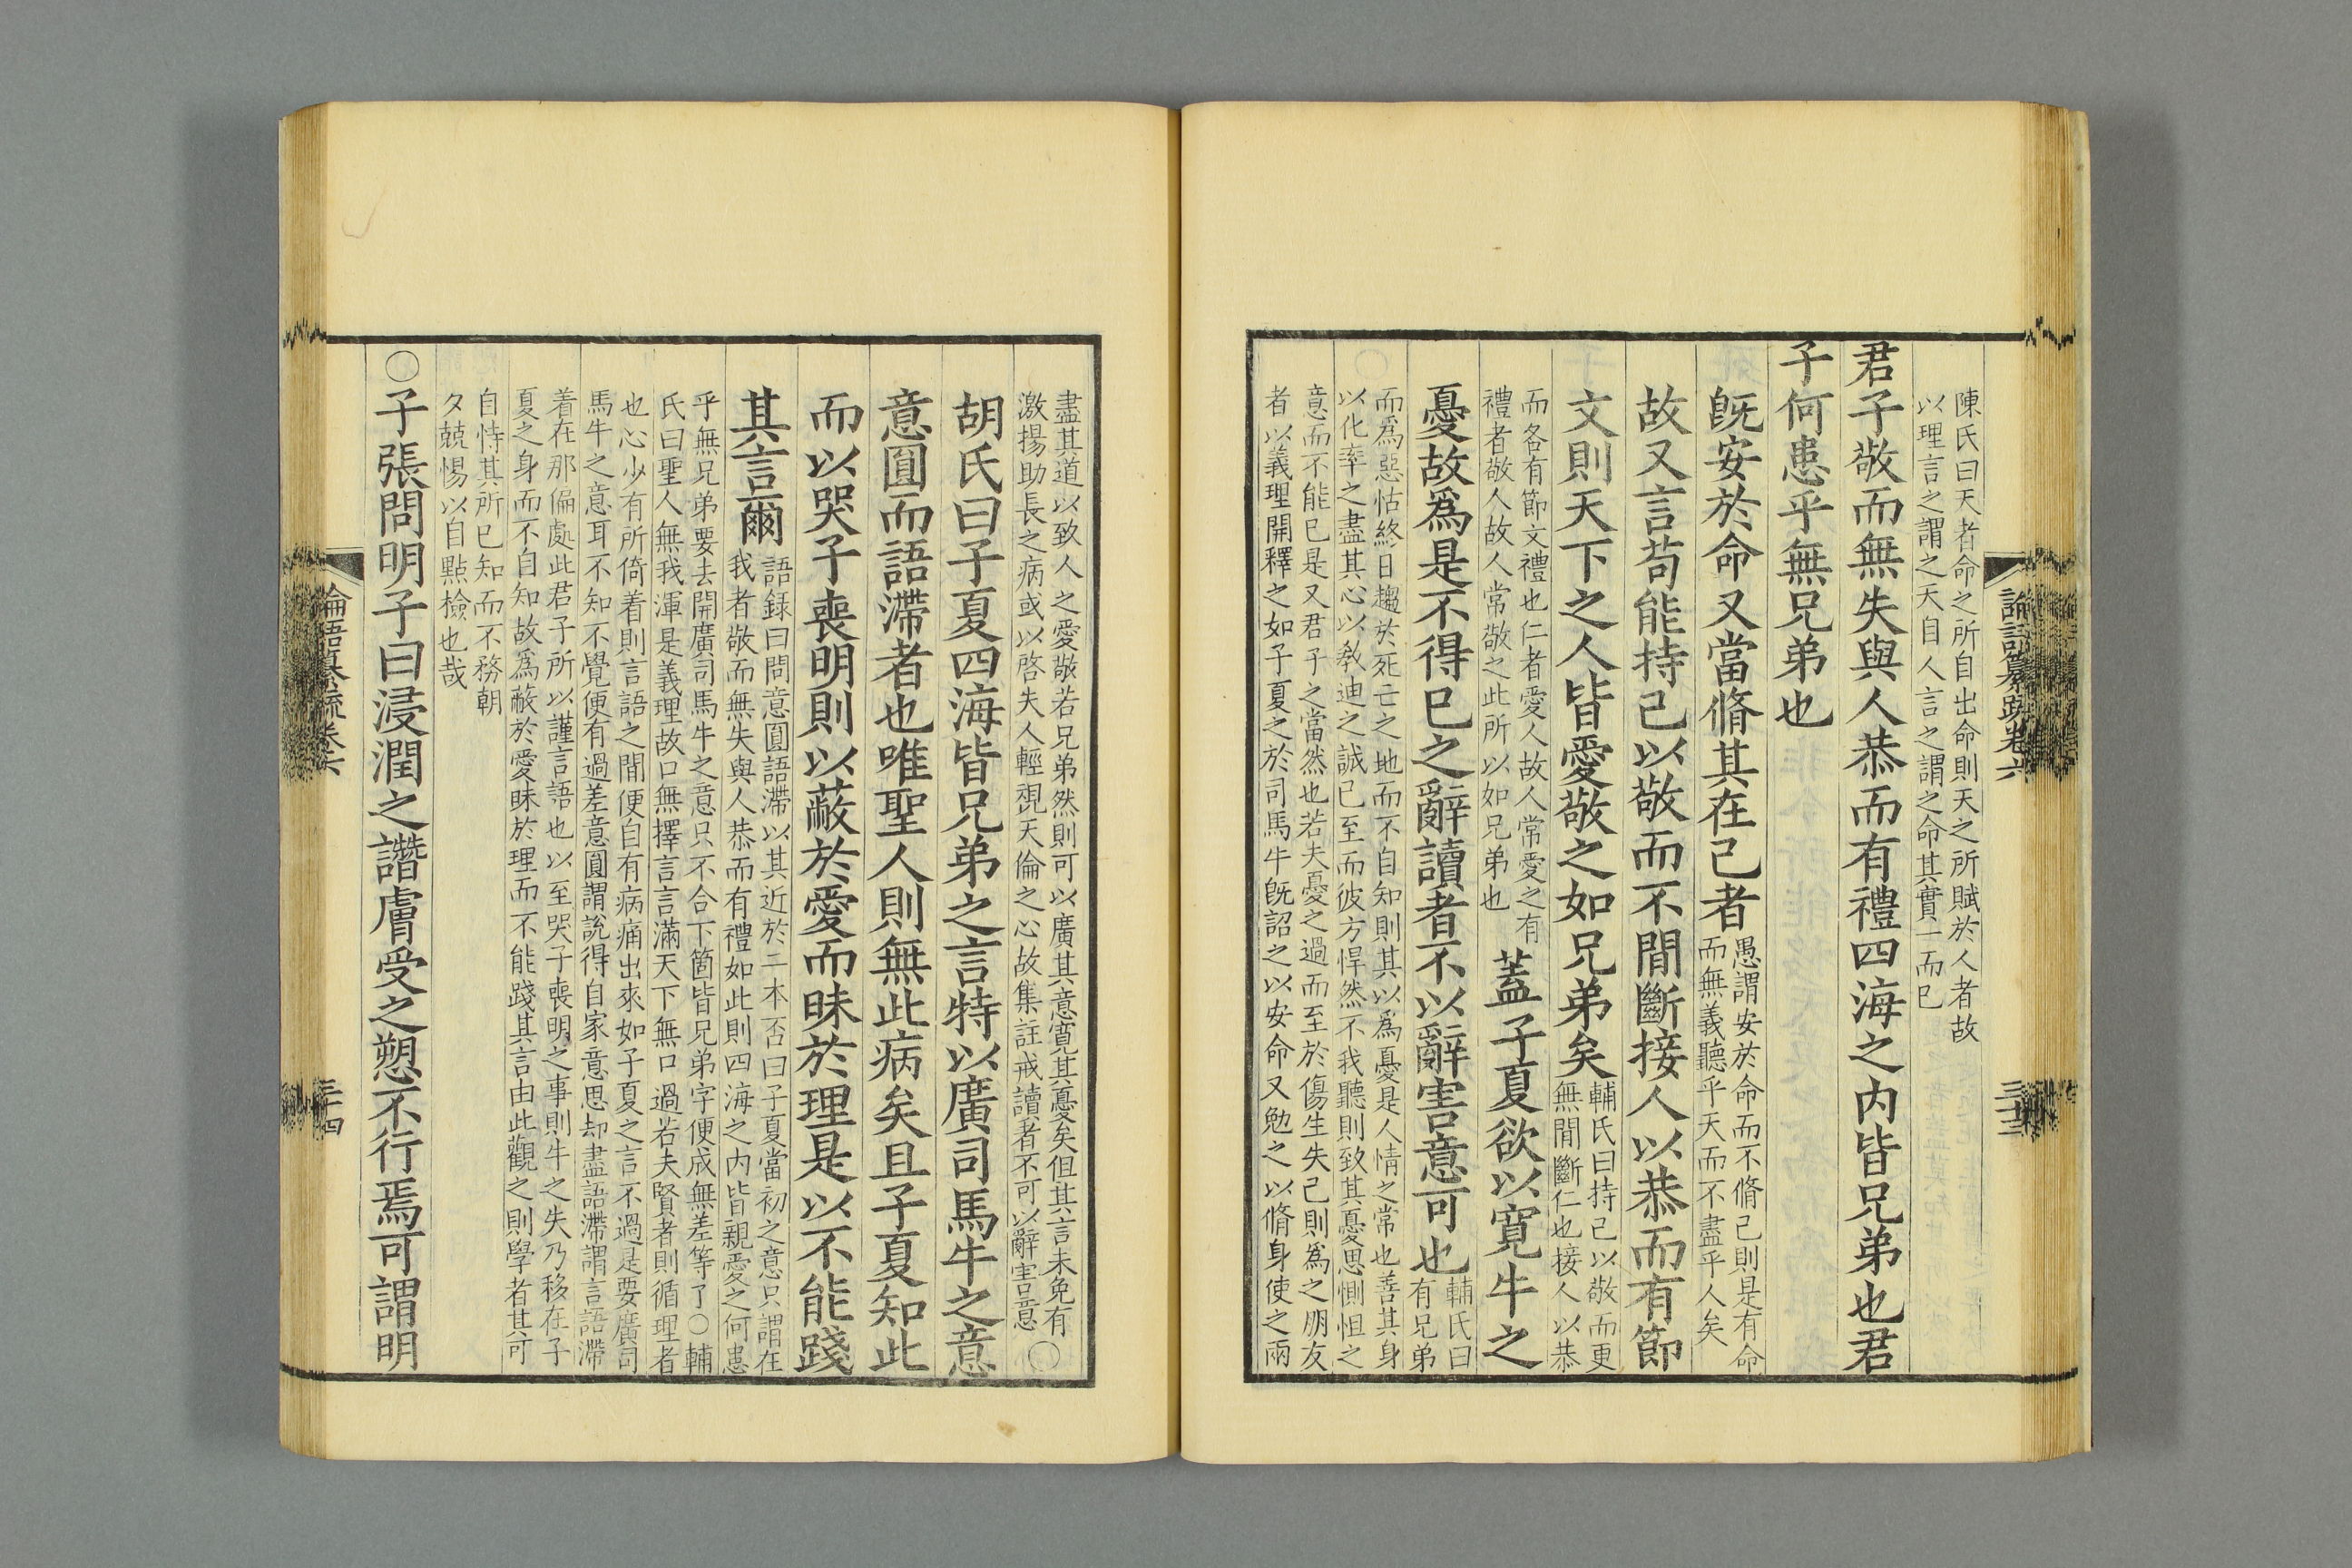 陳氏曰天者命之所自出命則天之所賦於人者故
以理言之謂之天自人言之謂之命其實一而已
君子敬而無失與人恭而有禮四海之内皆兄弟也君
子何患乎無兄弟也
旣安於命又當脩其在己者
愚謂安於命而不脩己則是有命
而無義聽乎天而不盡乎人矣
故又言苟能持己以敬而不間斷接人以恭而有節
文則天下之人皆愛敬之如兄弟矣
輔氏曰持己以敬而更
無間斷仁也接人以恭
而各有節文禮也仁者愛人故人常愛之有
禮者敬人故人常敬之此所以如兄弟也
蓋子夏欲以寛牛之
憂故爲是不得已之辭讀者不以辭害意可也
輔氏曰
有兄弟
而爲惡怙終日趨於死亡之地而不自知則其以爲憂是人情之常也善其身
以化率之盡其心以敎迪之誠已至而彼方悍然不我聽則致其憂思惻怛之
意而不能已是又君子之當然也若夫憂之過而至於傷生失己則爲之朋友
者以義理開釋之如子夏之於司馬牛旣詔之以安命又勉之以脩身使之兩
論語纂疏卷六
三十三
盡其道以致人之愛敬若兄弟然則可以廣其意寛其憂矣但其言未免有
激揚助長之病或以啓夫人輕視天倫之心故集註戒讀者不可以辭害意
○
胡氏曰子夏四海皆兄弟之言特以廣司馬牛之意
意圓而語滯者也唯聖人則無此病矣且子夏知此
而以哭子喪明則以蔽於愛而昧於理是以不能踐
其言爾
語録曰問意圓語滯以其近於二本否曰子夏當初之意只謂在
我者敬而無失與人恭而有禮如此則四海之内皆親愛之何患
乎無兄弟要去開廣司馬牛之意只不合下箇皆兄弟字便成無差等了○輔
氏曰聖人無我渾是義理故口無擇言言滿天下無口過若夫賢者則循理者
也心少有所倚着則言語之間便自有病痛出來如子夏之言不過是要廣司
馬牛之意耳不知不覺便有過差意圓謂說得自家意思却盡語滯謂言語滯
着在那偏處此君子所以謹言語也以至哭子喪明之事則牛之失乃移在子
夏之身而不自知故爲蔽於愛昧於理而不能踐其言由此觀之則學者其可
自恃其所已知而不務朝
夕兢惕以自點檢也哉
○子張問明子曰浸潤之譖膚受之愬不行焉可謂明
論語纂疏卷六
三十四